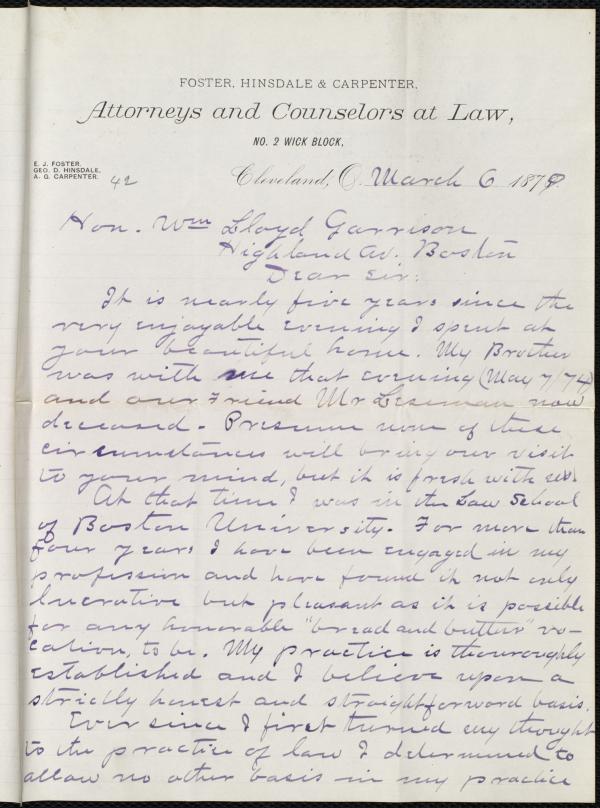 FOSTER, HINSDALE & CARPENTER,
Attorneys and Counselors at Law,
NO. 2 WICK BLOCK,
E. J. FOSTER.
GEO. D. HINSDALE,
A. G. CARPENTER.
42
Cleveland, O. March 6 1879.
Hon. Wm Lloyd Garrison
Highland Av. Boston
Dear Sir:
It is nearly five years since the
very enjoyable evening I spent at
your beautiful home. My Brother
was with me that evening (May 7/74)
and our Friend Mr Leseman now
deceased. Presume none of these
circumstances will bring our visit
to your mind, but it is fresh with us.
At that time I was in the Law School
of Boston University. For more than
four years I have been engaged in my
profession and have found it not only
lucrative but pleasant as it is possible
for any honorable "bread and butter" vo-
cation, to be. My practice is thouroughly
established and I believe upon a
strictly honest and straightforword basis.
Ever since I first turned my thought
to the practice of law I determined to
allow no other basis in my practice